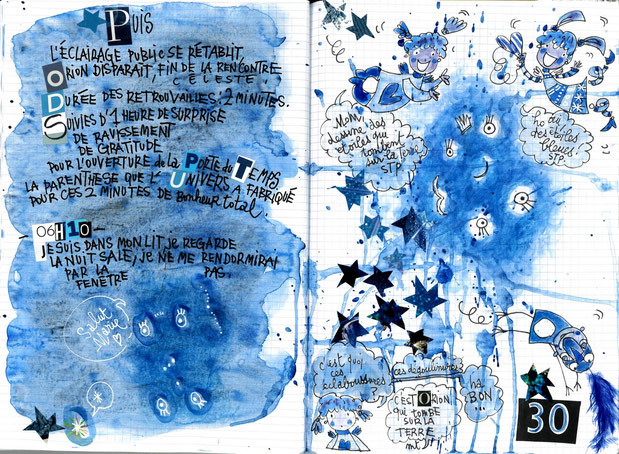 PUIS
L'ÉCLAIRAGE PUBLIC SE RÉTABLIT
ORION DISPARAIT, FIN DE LA RENCONTRE
CÉLESTE
DURÉE DES RETROUVAILLES: 2 MINUTES.
SUIVIES D'1 HEURE DE SURPRISE
DE RAVISSEMENT
DE GRATITUDE
POUR L'OUVERTURE de la PORTE du TEMPS
LA PARENTHESE QUE L'UNIVERS A FABRIQUÉ
POUR CES 2 MINUTES DE BONHEUR total.
06H10
JE SUIS DANS MON LIT JE REGARDE
LA NUIT SALE, JE NE ME RENDORMIRAI
PAR LA PAS.
FENÊTRE
Salut
Marie
Mon
dessine des
étoiles qui
tombent
sur la terre
STP
ho oui
des étoiles
bleues
STP.
c'est quoi
ces
éclaboussures
ces dégoulinures?
C'EST ORION
qui TOMBE
SUR LA
TERRE
ha
BON
...
30